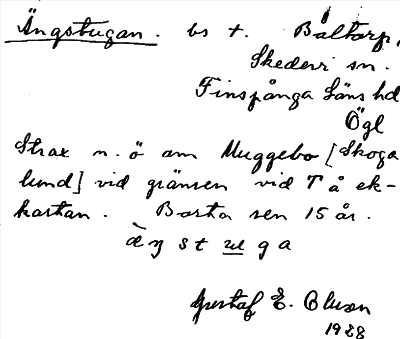 Ängstugan. bs t. Båltorp,
Skedevi sn.
Finspånga Läns hd
Ögl
Strax n. ö om Muggebo [Skoga
lund] vid gränsen vid T å ek-
kartan. Borta sen 15 år.
Gustaf E. Bluson
1928